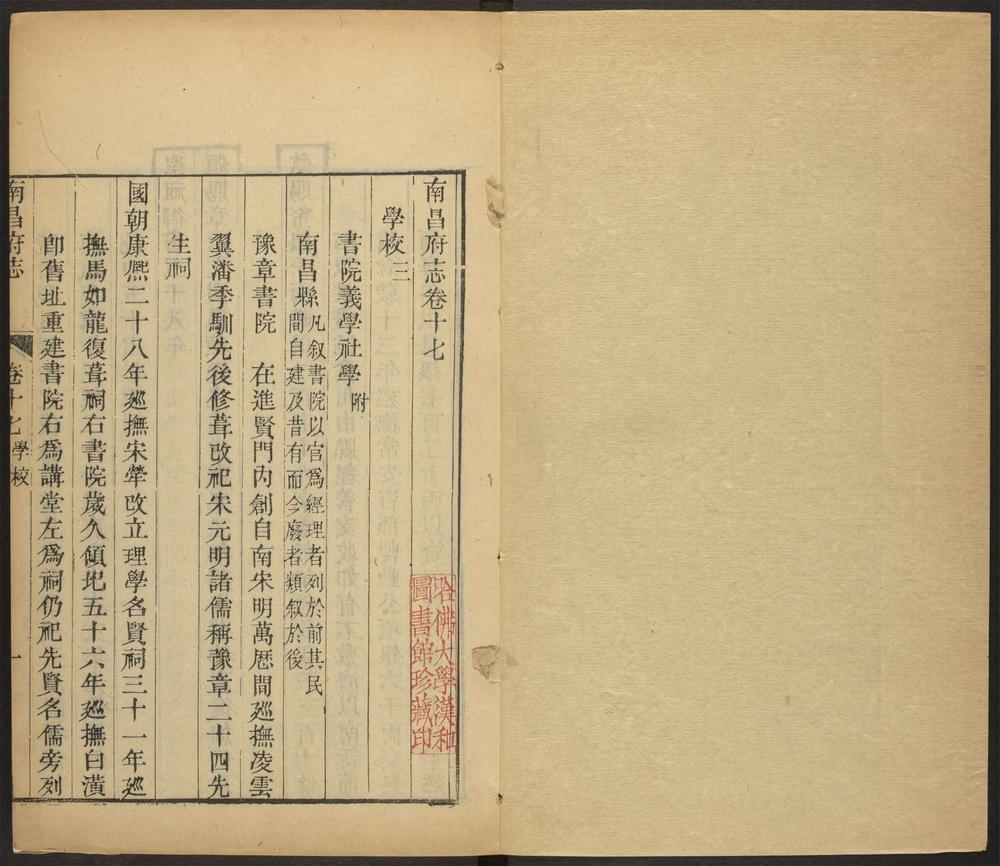 南昌府志卷十七
學校三
書院義學社學附
南昌縣凡叙書院以官爲經理者列於前其民
間自建及昔有而今廢者類叙於後
豫章書院 在進賢門内創自南宋明萬厯間廵撫凌雲
翼潘季馴先後修葺改祀宋元明諸儒稱豫章二十四先
生祠
國朝康熈二十八年廵撫宋犖改立理學名賢祠三十一年廵
撫馬如龍復葺祠右書院歲久傾圯五十六年廵撫白潢
卽舊址重建書院右爲講堂左爲祠仍祀先賢名儒旁列
南昌府志 卷十七 學校 一
哈佛大學漢和
圖書館珍藏印